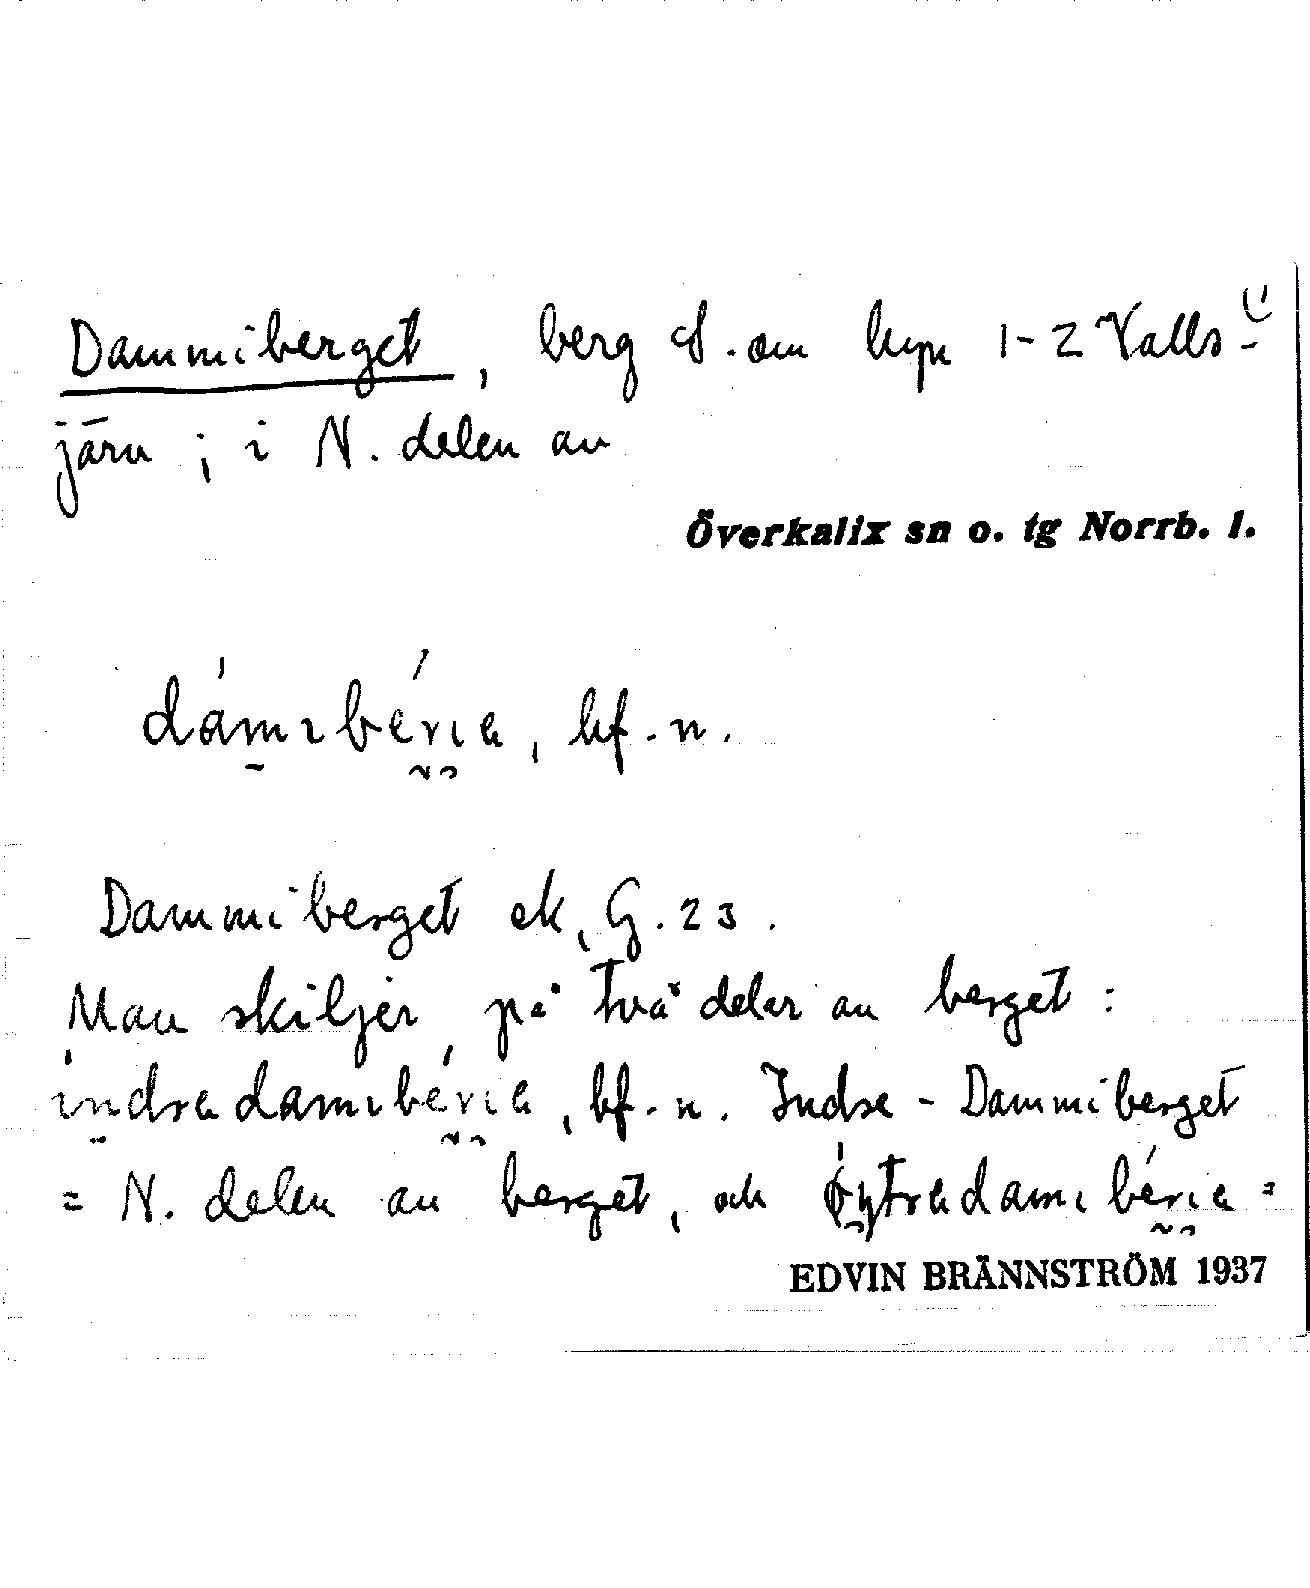 Dammiberget, berg S. om byn 1-2 Valls-
järv ; i N. delen av
Överkalix sn o. tg Norrb. l.
dámıbérıa, bf. n.
Dammiberget ek, G. 23.
Man skiljer på två delar av berget :
índradamıbérıa, bf. n. Indre - Dammiberget
= N. delen av berget, och øytradamıbérıa =
EDVIN BRÄNNSTRÖM 1937